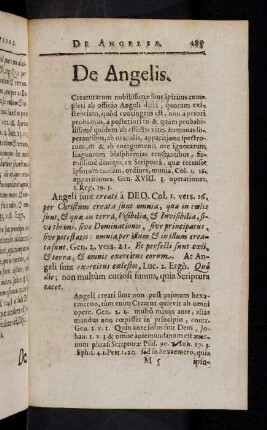 DE ANGELIS. 185
De Angelis.
Creaturarum nobilissimæ sunt spiritus com-
pleti ab officio Angeli dicti, quorum exi-
stentiam, quòd contingens est, non a priori
probamus, à posteriori & quàm probabi-
lissimè quidem ab effectis vires humanas su-
perantibus, ab oraculis, apparitione spectro-
rum, & ab energumenis, ore ignorarum
linguarum blasphemias eructantibus, fir-
missimè denique ex Scripturâ, quæ recenset
ipsorum causam, ordines, munia, Col. 1. 16.
apparitiones. Gen. XVIII. operationes.
1. Reg. 19. 5.
Angeli sunt creati à DEO. Col. 1. vers. 16.
per Christum creata sunt omnia, quæ in cœlis
sunt, & quæ in terrâ, Visibilia, & Invisibilia, si-
ve throni, sive Dominationes, sive principatus,
sive potestates: omnia per illum & in illum crea-
ta sunt. Gen. 2. vers. 2. 1. Et perfecti sunt cœli,
& terra, & omnis exercitus eorum. At An-
geli sunt exercitus cœlestes, Luc. 2. Ergò. Quâ
die; non multùm curiosi sumus, quia Scriptura
tacet.
Angeli creati sunt non post primum hexa-
emeron, tùm enim Creator quievit ab omni
opere. Gen. 2. multò minus ante, aliàs
mundus non cœpisset in principio, contra
Gen. 1. v. 1. Quia ante solus fuit Deus, Joh-
an. 1. v. 1. & omne antemundanum est æter-
num phrasi Scripturæ Psal. 90. 2. Joh. 17. 5.
Eph. 1. 4. 1. Pet. 1. 20. sed in hexaemero, quia
M 5 ipso-